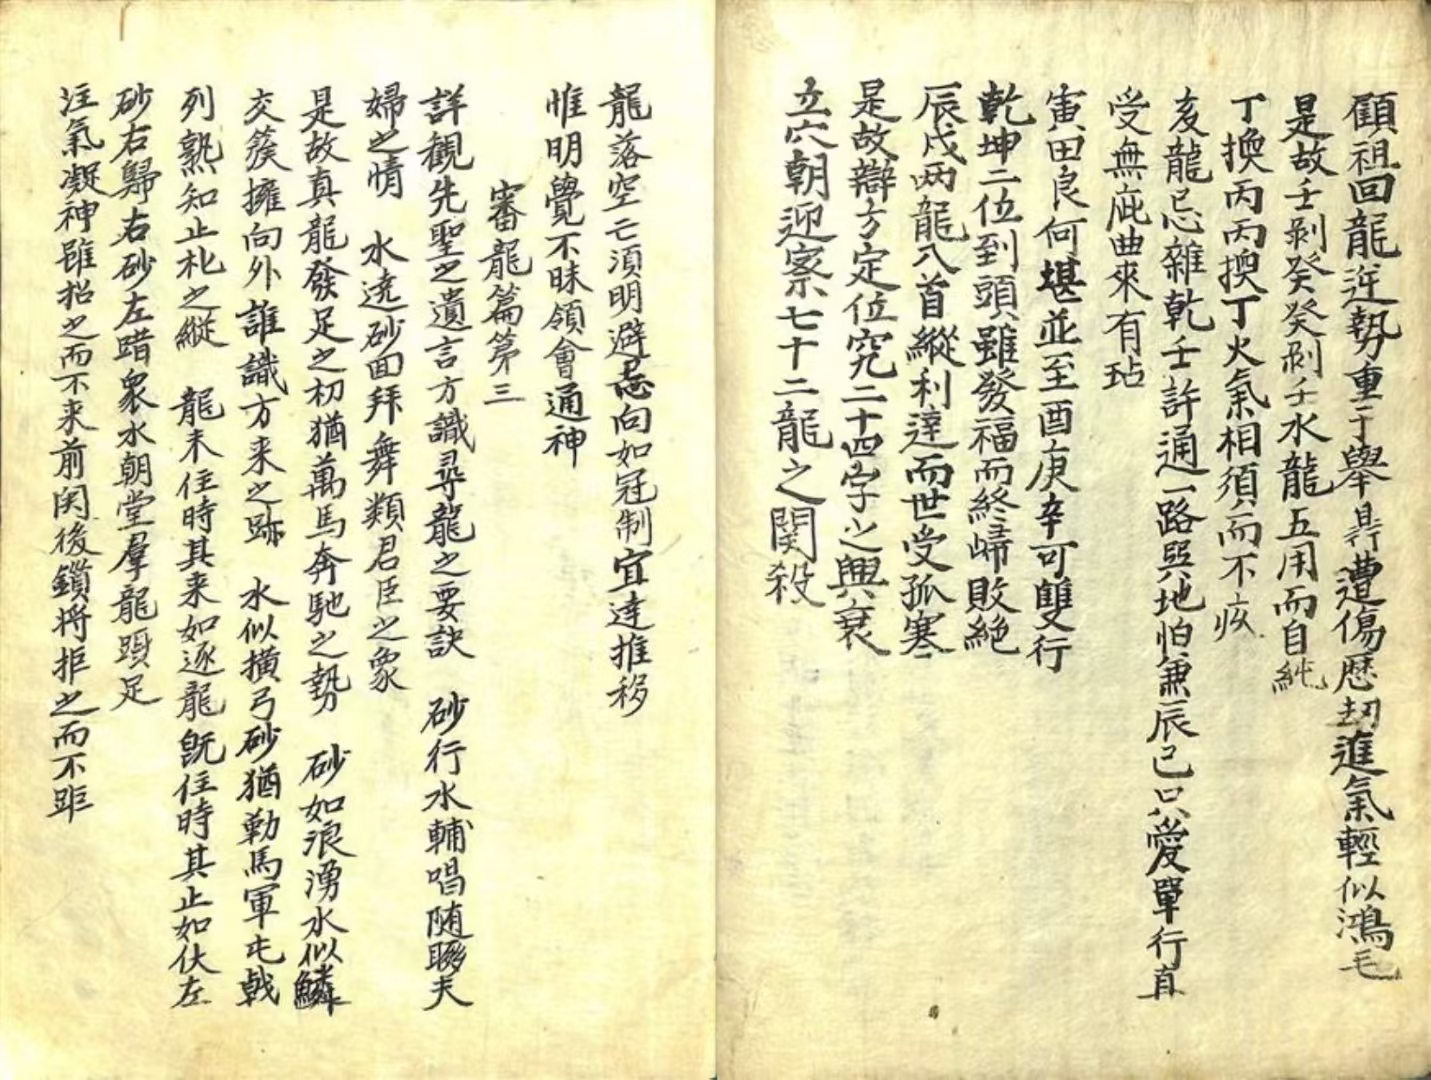 顧祖回龍逆勢重于舉鼎遭傷歷刧進氣輕似鴻毛
是故壬剥癸癸剥壬水龍五用而自純
丁換丙丙換丁火氣相須而不妨
亥龍忌雜乾壬許通一路巽地怕兼辰已只愛單行直
受無庇曲來有玷
寅甲艮何堪並至酉庚辛可雙行
乾坤二位到頭雖發福而終歸敗絕
辰戌两龍入首縱利達而世受孤寒
是故辯方定位究二十四字之興衰
立穴朝迎察七十二龍之関殺
龍落空亡須明避忌向如冠制宜達推移
惟明覺不昧領會通神
審龍篇第三
詳観先聖之遺言方識尋龍之要訣 砂行水輔唱随聯夫
婦之情 水遶砂面拜舞類君臣之象
是故真龍發足之初猶萬馬奔馳之勢 砂如浪湧水似鱗
交簇擁向外誰識方来之跡 水似横弓砂猶勒馬軍屯戟
列熟知止札之縱 龍未住時其来如逐龍既住時其止如伏左
砂右歸右砂左踏衆水朝堂羣龍頭足
注氣凝神雖招之而不来前関後鎖将拒之而不距